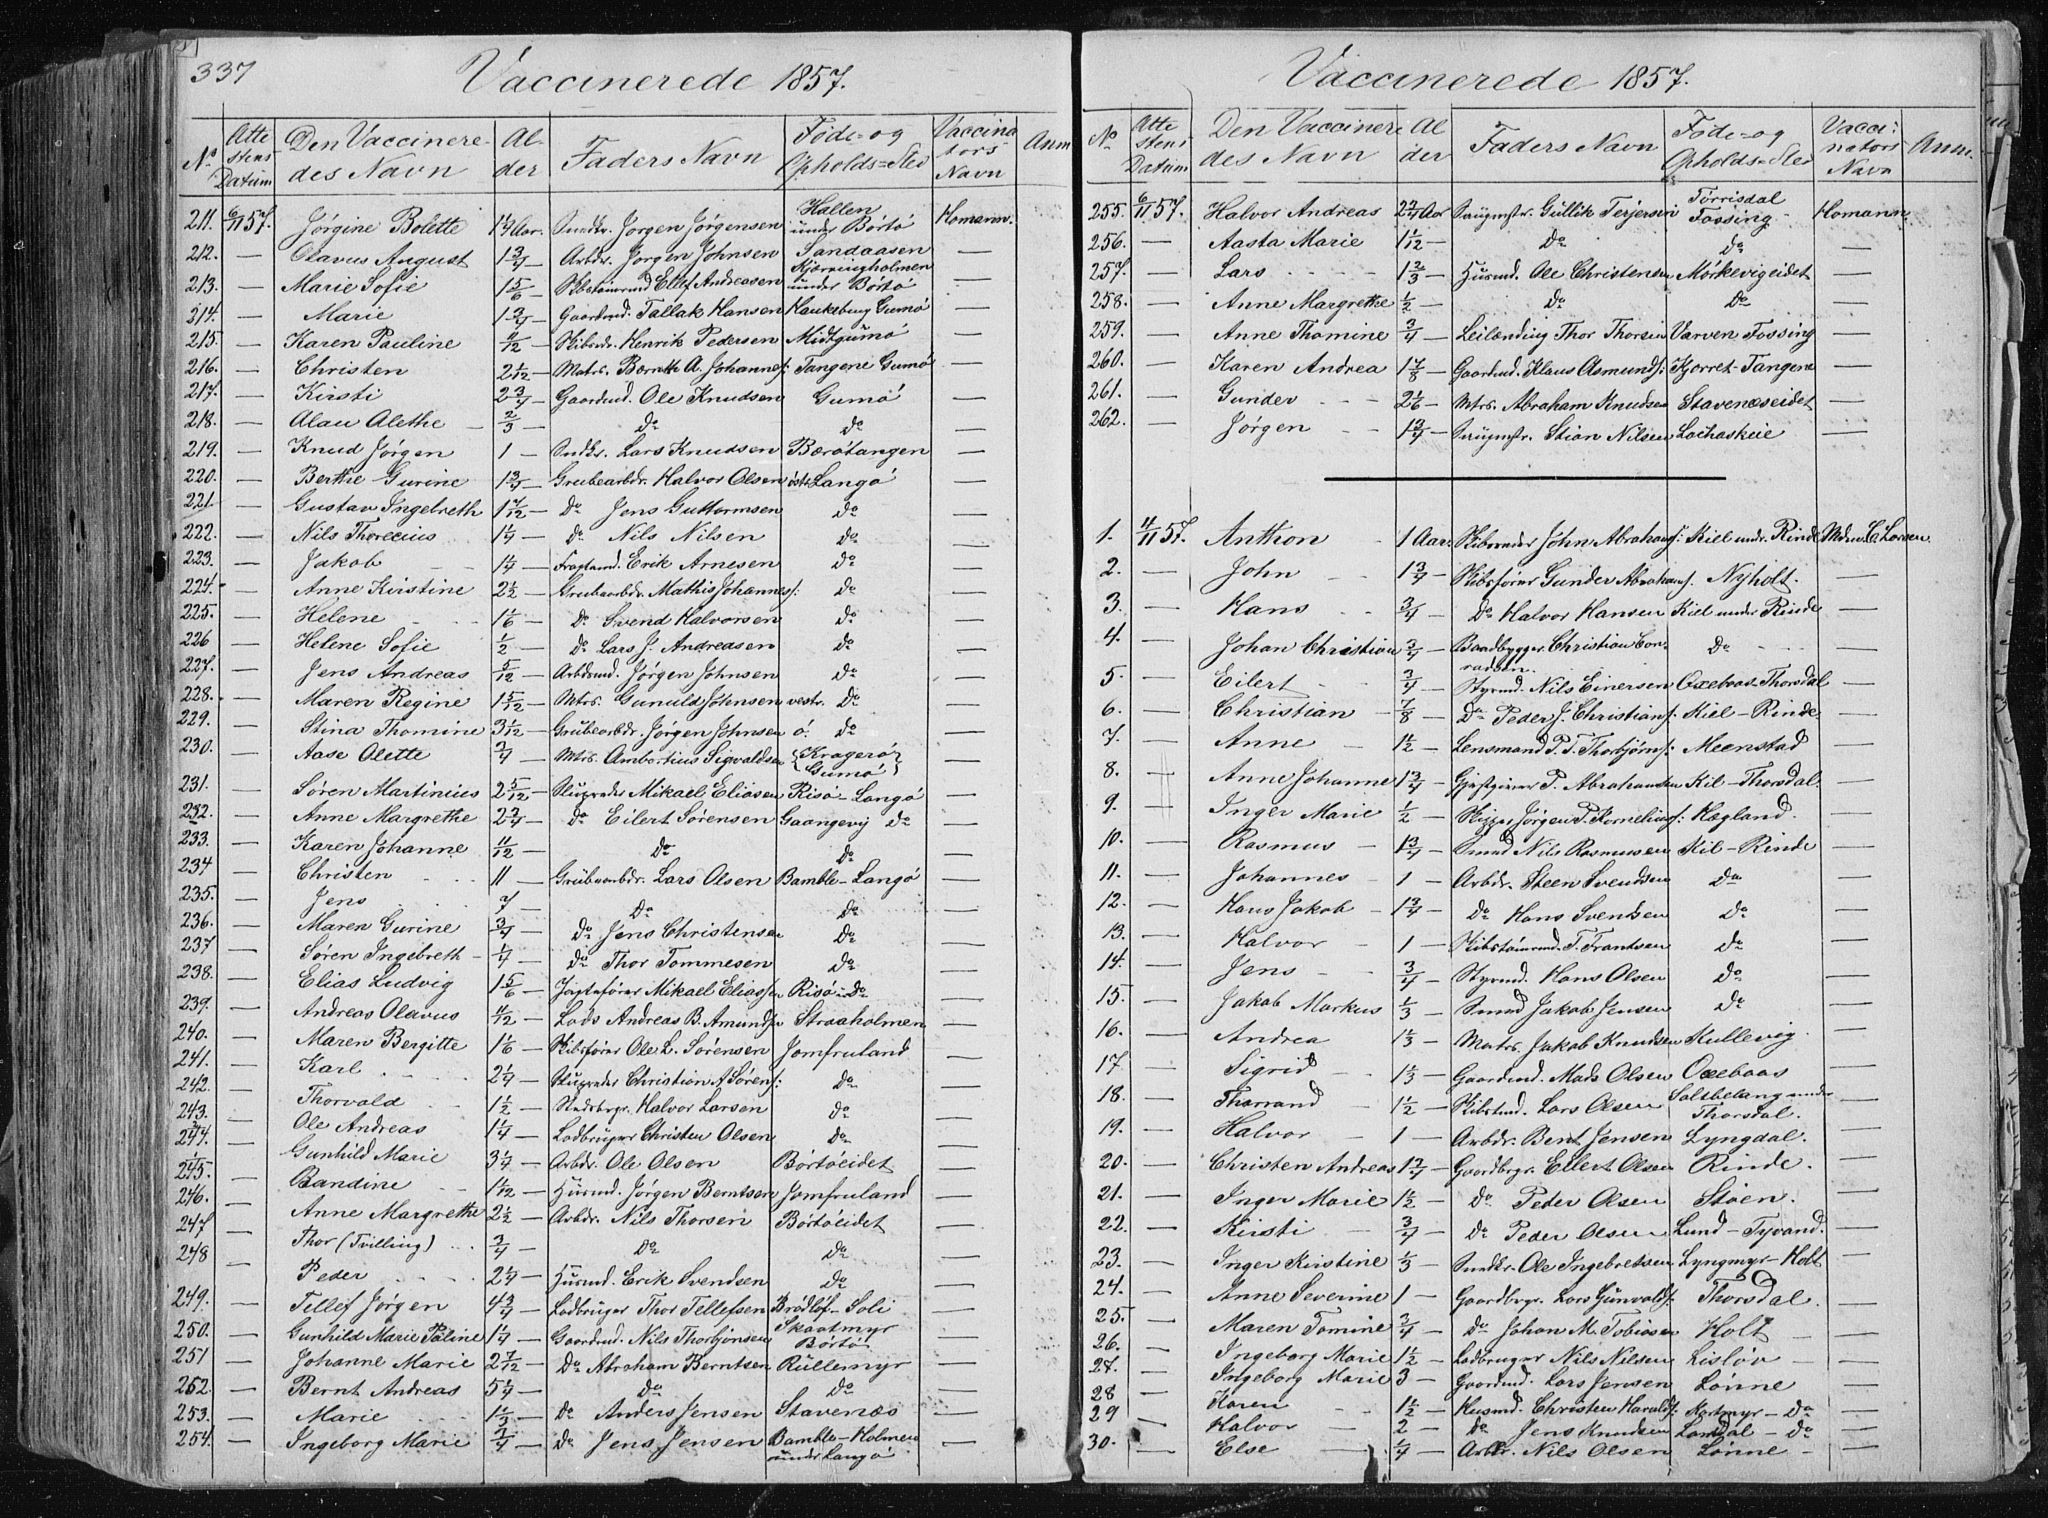 337
Vaccinerede 1857.
No
Atte stens Datum
Den Vaccinere des Navn
Al der
Faders Navn
Føde- og Opholds-Sted
Vaccina tors Navn
Anm
211. 6/11 57. Jørgine Bolette 1 1/4 Aar. Smdbr. Jørgen Jørgensen Hallen under Börtö Homann.
212. — Olavus August 1 3/4 — Arbdr. Jørgen Johnsen Sandaasen —
213. — Marie Sofie 1 5/6 — Skbstömrmd Ellef Andreasen Kjærringholmen under Börtö —
214. — Marie 1 3/4 — Gaardmd. Tallak Hansen Hauksberg Gumö —
215. — Karen Pauline 11/12 — Skibsdr. Henrik Pedersen Midtgumö —
216. — Christen 2 1/12 — Matrs. Berntte A. Johannes: Tangene Gumö —
217. — Kirsti 2 3/4 — Gaardmd. Ole Knudsen Gumö —
218. — Alau Alethe 2/3 — Do Do —
219. — Knud Jørgen 1 — Smdbr. Lars Knudsen Bærötangen —
220. — Berthe Gurine 1 3/4 — Grubearbdr. Halvor Olsen östr. Langö —
221. — Gustav Ingebreth 1 7/12 — Do Jens Guttormsen Do —
222. — Nils Thorecius 1/4 — do Nils Nilsen Do —
223. — Jakob 1/4 — Fraglmd. Erik Arnesen Do —
224. — Anne Kirstine 2 1/2 — Grubearbdr. Mathis Johannes: Do —
225. — Helene 1/6 — Do Svend Halvorsen Do —
226 — Helene Sofie 1/2 — Do Lars J. Andreasen Do —
227. — Jens Andreas 5/12 — Arbdsmd. Jørgen Johnsen Do —
228. — Maren Regine 1 5/12 — Mtrs. Gunuld Johnsen vestr. Do —
229. — Stina Thomine 3 1/12 — Grubearbdr. Jørgen Johnsen ö. Do —
230. — Aase Olette 3/4 — Mtrs. Ambortius Sigvaldsen (Kragerö) (Gumö) —
231. — Søren Martinius 2 5/12 — Mikael Eliasen Risö – Langö —
232. — Anne Margrethe 2 3/4 — Do Eilert Sørensen Gaangevij Do —
233. — Karen Johanne 11/12 — Do Do —
234 — Christen 11 — Grubearbdr. Lars Olsen Bamble – Langö —
235. — Jens 7 — Do Do —
236. — Maren Gurine 3/4 — Do Jens Christensen Do —
237 — Søren Ingebreth 1/4 — Do Thor Tommesen Do —
238. — Elias Ludvig 1 5/6 — Jagtefører Mikael Eliassen Risö – Do —
239. — Andreas Olavus 11/12 — Lods Andreas B. Amunds Straaholmen —
240. — Maren Bergitte 1 1/6 — Skibsfører Ole L. Sørensen Jomfruland —
241. — Karl 2 1/4 — Christian A Søren: Do —
242. — Thorvald 1 1/2 — Halvor Larsen Do —
243. — Ole Andreas 1 1/4 — Lodbruger Christen Olsen Do —
244. — Gunhild Marie 3 1/4 — Arbdr. Ole Olsen Börtöeidet —
245. — Bandine 1 1/12 — Husmd. Jørgen Berntsen Jomfruland —
246. — Anne Margrethe 2 1/2 — Arbdr. Nils Thorsen Börtöeidet —
247 — Thor (Tvilling) 3/4 — Do Do —
248 — Peder 2 1/4 — Husmd. Erik Svendsen Do —
249. — Tellef Jørgen 4 3/4 — Lodbruger Thor Tellefsen Bradlöf – Soli —
250. — Gunhild Marie Paline 1 1/4 — Gaardmd. Nils Thorbjönsen Skaatmyr Börtö —
251 — Johanne Marie 2 7/12 — Do Abraham Berntsen Rullemyr —
252. — Bernt Andreas 5 1/4 — Do Do —
253. — Marie 1 1/3 — Do Anders Jensen Stavenæs —
254. — Ingeborg Marie 3/4 — Do Jens Jensen Bamble – Holmen under Langö —
Vaccinerede 1857.
No
Atte stens Datum
Den Vaccinere des Navn
Al der
Faders Navn
Føde- og Opholds-Sted
Vacci- nators Navn
Anm.
255. 6/11 57. Halvor Andreas 2 3/4 Aar Gullik Terjersen Törrisdal Tossing. Homann.
256. — Aasta Marie 1 1/12 — Do Do —
257. — Lars 1 2/3 — Husmd. Ole Christensen Mörkevigeidet —
258. — Anne Margrethe 1/2 — Do Do —
259. — Anne Thomine 3/4 — Leilending Thor Thorsen Varven Tossing —
260. — Karen Andrea 1 7/8 — Gaardmd. Klaus Asmunds: Kjorret – Tangene —
261. — Gunder 2 1/6 — Mtrs. Abraham Knudsen Stavenæseidet —
262. — Jørgen 1 3/4 — Stian Nilsen Lochaskeie —
1. 11/11 57. Anthon 1 Aar. Skibsreder John Abrahams: Kiel undr. Rinde Mdm. C. Larsen.
2. — John 1 3/4 — Skibsfører Gunder Abrahams. Nyholt. —
3. — Hans 3/4 — Do Halvor Hansen Kiel under Rinde —
4. — Johan Christian 3/4 — Baadbygger Christian Conradsen. Do —
5. — Eilert 3/4 — Styrmd. Nils Einersen Oxebaas – Thorsdal —
6. — Christian 7/8 — Do Peder J. Christians: Kiel – Rinde —
7. — Anne 1 1/2 — Lensmand P. T. Thorbjörns: Meenstad —
8. — Anne Johanne 1 3/4 — Gjæstgiver P. Abrahamsen Kil – Thorsdal. —
9. — Inger Marie 1/2 — Skipper Jørgen P. Kornelius: Hægland. —
10. — Rasmus 1 3/4 — Smed Nils Rasmussen Kil – Rinde —
11. — Johannes 1 — Arbdr. Steen Svendsen Do —
12. — Hans Jakob 1 3/4 — Do Hans Svendsen Do —
13. — Halvor 1 — Skibstömrmd. T. Frantsen Do —
14. — Jens 3/4 — Styrmd. Hans Olsen Do —
15. — Jakob Markus 1/3 — Smed Jakob Jensen Do —
16. — Andrea 1 1/3 — Matrs. Jakob Knudsen Kullevig. —
17. — Sigrid 1 1/3 — Gaardmd. Mads Olsen Oxebaas —
18. — Thorrand 1 1/2 — Skibstmd. Lars Olsen Saltbelang under Thorsdal. —
19. — Halvor 1 — Arbdr. Bent Jensen Lyngdal. —
20. — Christen Andreas 1 3/4 — Gaardbrgr. Ellert Olsen Rinde. —
21. — Inger Marie 1 1/2 — Do Peder Olsen Stöen. —
22. — Kirsti 3/4 — Do Peder Olsen Lund – Tyvand. —
23. — Inger Kirstine 1/3 — Smdbr. Ole Ingebretsen Lyngmyr – Holt —
24. — Anne Severine 1 — Gaardbrgr. Lars Gunvalds: Thorsdal. —
25. — Maren Tomine 3/4 — Do Johan M. Tobiasen Holt —
26. — Ingeborg Marie 1 1/2 — Lodbruger Nils Nilsen Lislöv —
27. — Ingeborg Marie 3 — Gaardmd. Lars Jensen Lönne —
28 — Karen 1 1/2 — Husmd. Christen Haralds: Kortmyr – Do —
29 — Halvor 2 — Do Jens Knudsen Landal – Do —
30. — Else 1/4 — Arbdr. Nils Olsen Lönne —